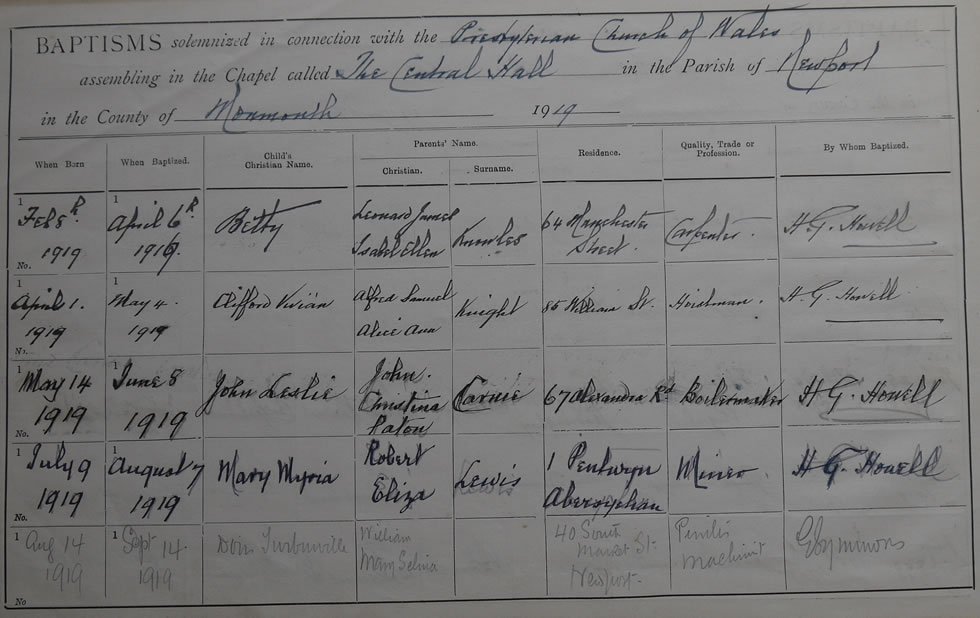 BAPTISMS solemnized in connection with the Presbyterian Church of Wales
assembling in the Chapel called The Central Hall in the Parish of Newport
in the County of Monmouth 1919
When Born When Baptized. Child's Christian Name. Parents' Name. Christian. Surname. Residence. Quality, Trade or Profession. By Whom Baptized.
1 Feb 8th 1 April 6th Betty Leonard James Knowles 64 Manchester Carpenter H G. Howell
No. 1919 1919. Isabel Ellen Street.
1 April 1. 1 May 4. Clifford Vivian Alfred Samuel Knight 85 William St. H. G. Howell
No. 1919 1919 Alice Ann
1 May 14 1 June 8 John Leslie John. Carnie 67 Alexandra Rd Boilermaker H G. Howell
No. 1919 1919 Christina
Paton
1 July 9 1 August 7 Mary Myria Robert Lewis 1 Pentwyn Miner H G. Howell
No. 1919 1919 Eliza Abersychan
1 Aug 14 1 Sept 14 William 40 Market St.
No 1919 1919 Mary Selina Newport. Machinist